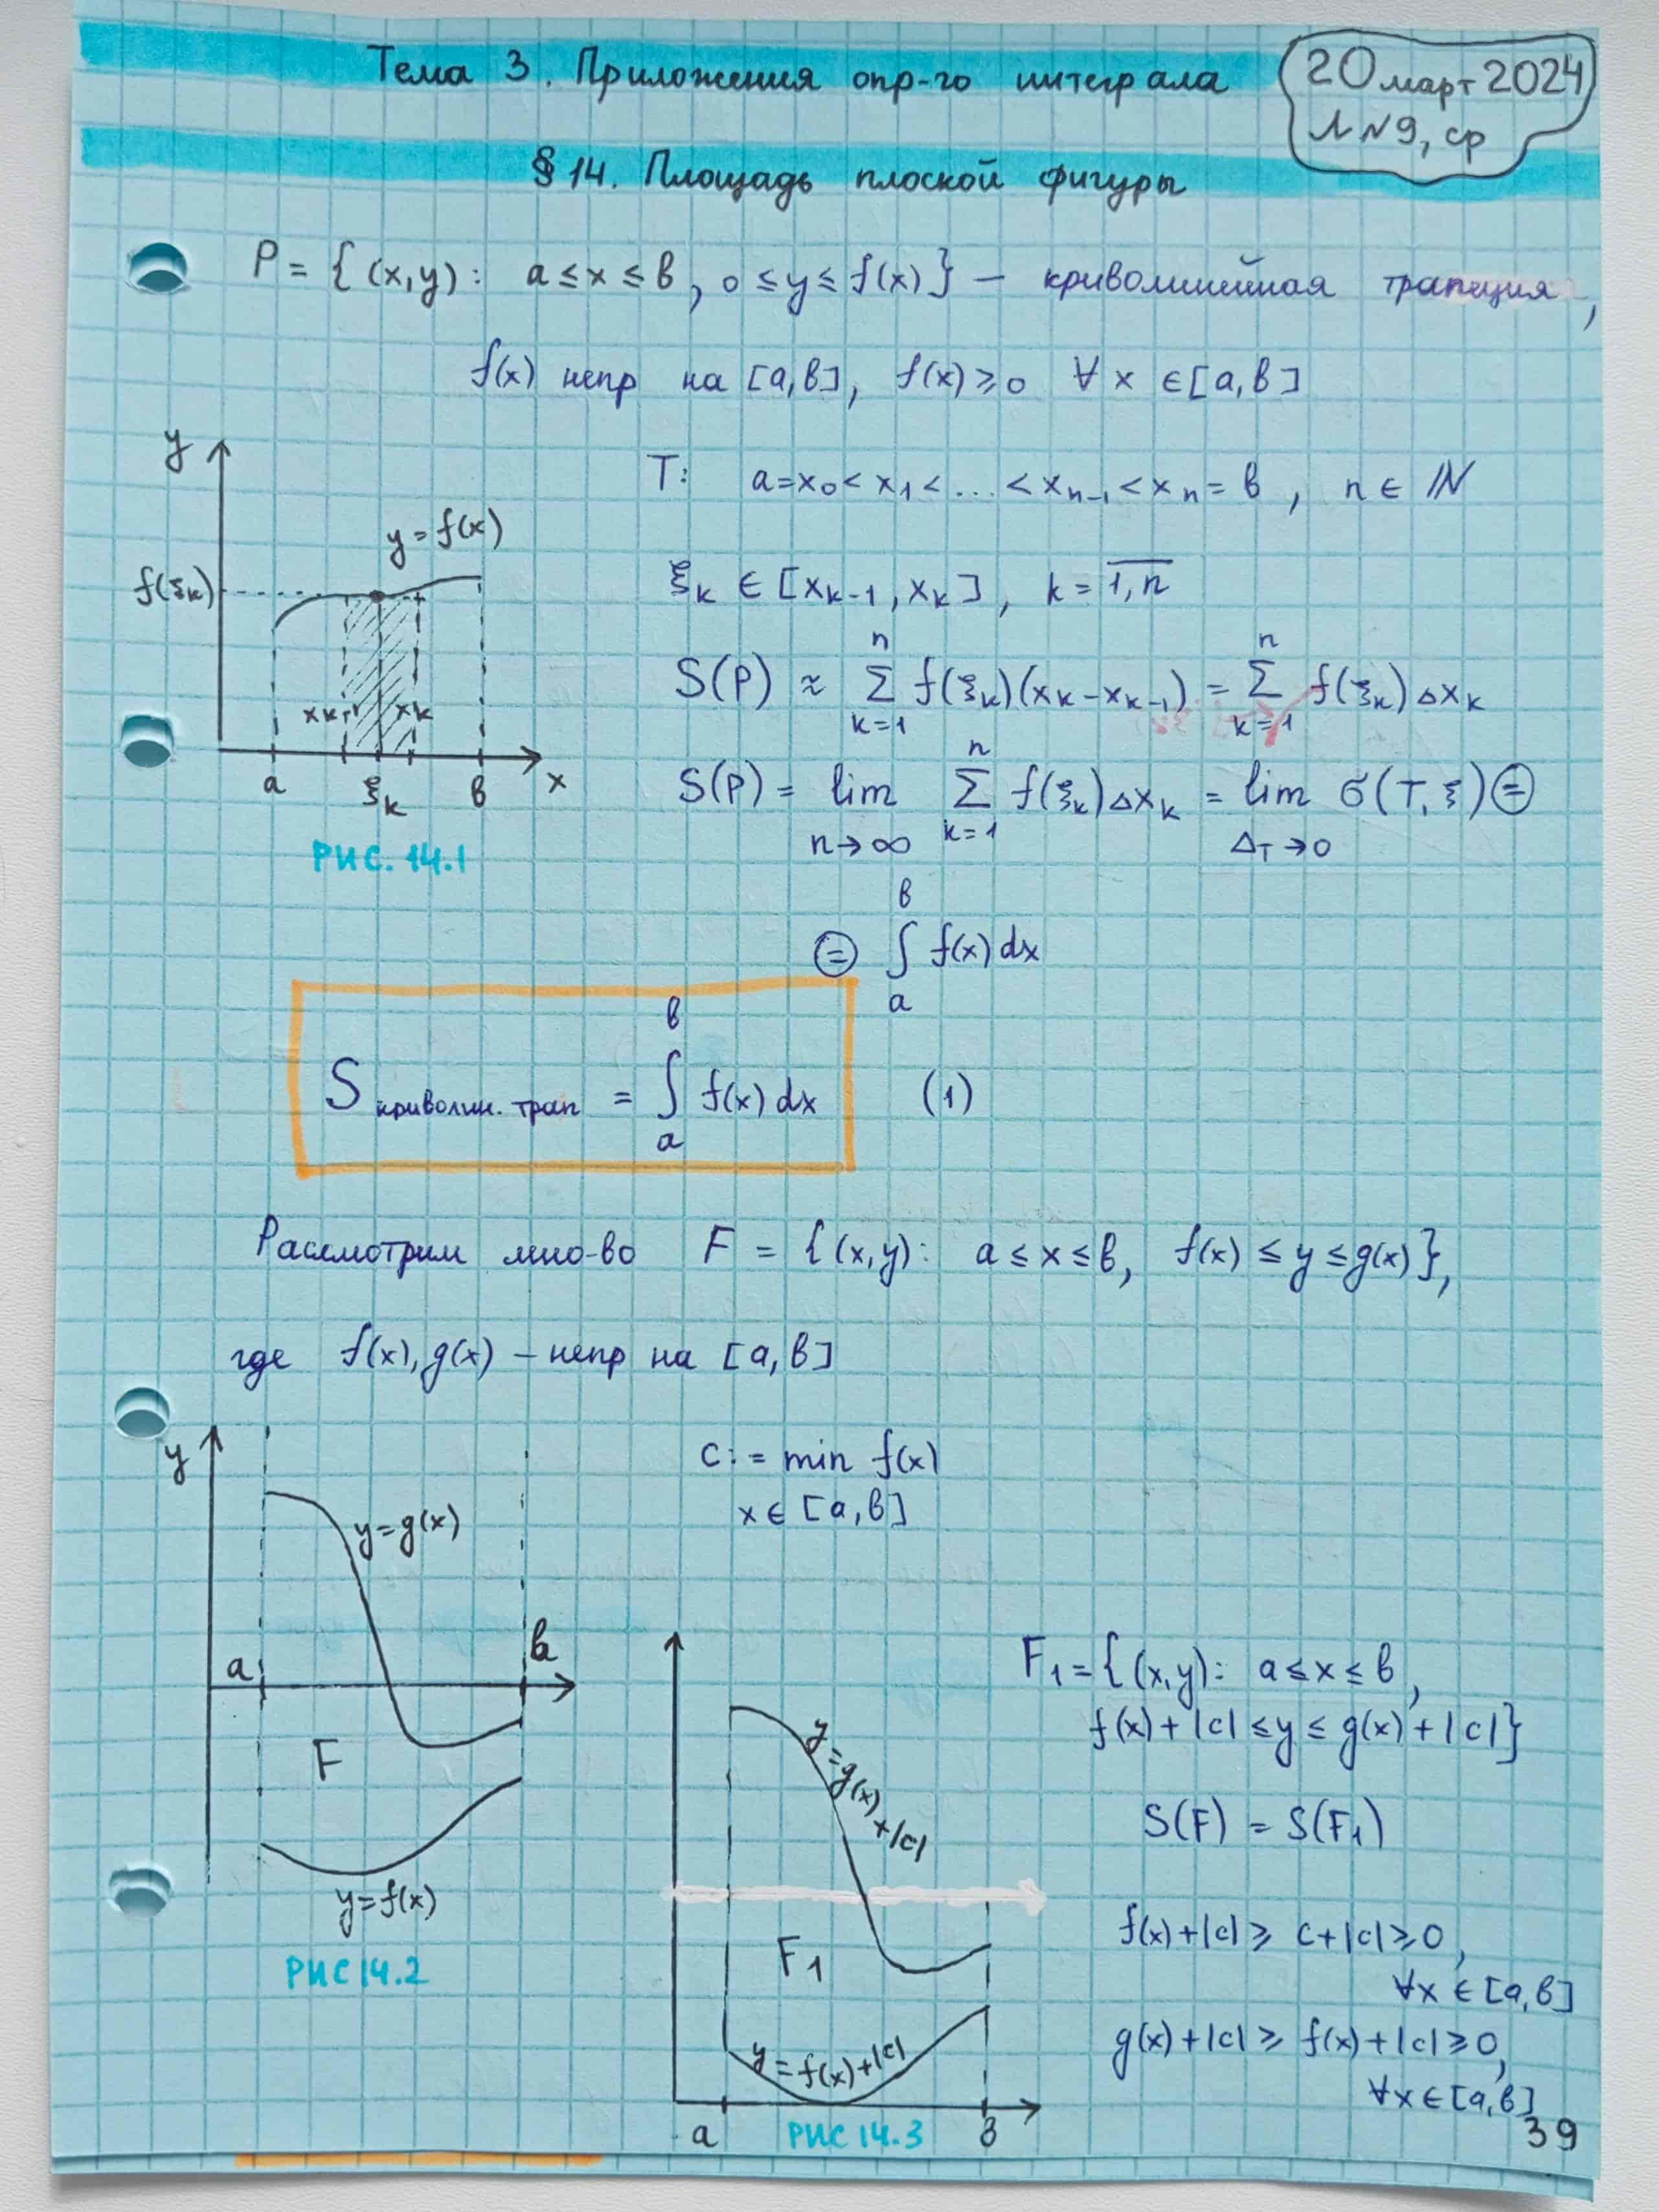 Тема 3. Приложения опр-го интеграла
20 март 2024
Л N9, ср
§ 14. Площадь плоской фигуры
P = { (x,y): a ≤ x ≤ b, 0 ≤ y ≤ f(x) } – криволинейная трапеция,
f(x) непр на [a,b], f(x) ≥ 0 ∀ x ∈ [a,b]
y
y = f(x)
f(ξk)
xk-1 xk
a ξk b x
РИС. 14.1
T: a = x0 < x1 < ... < xn-1 < xn = b, n ∈ N
ξk ∈ [xk-1, xk], k = 1,n
S(P) ≈ n Σ k=1 f(ξk)(xk - xk-1) = n Σ k=1 f(ξk) Δxk
S(P) = lim n→∞ n Σ k=1 f(ξk) Δxk = lim ΔT→0 σ(T, ξ) =
= b ∫ a f(x) dx
S криволин. трап = b ∫ a f(x) dx (1)
Рассмотрим мно-во F = { (x,y): a ≤ x ≤ b, f(x) ≤ y ≤ g(x) },
где f(x), g(x) – непр на [a,b]
y
y = g(x)
a b
F
y = f(x)
РИС 14.2
c := min f(x)
x ∈ [a,b]
y = g(x) + |c|
F1
y = f(x) + |c|
a b
РИС 14.3
F1 = { (x,y): a ≤ x ≤ b,
f(x) + |c| ≤ y ≤ g(x) + |c| }
S(F) = S(F1)
f(x) + |c| ≥ c + |c| ≥ 0,
∀x ∈ [a,b]
g(x) + |c| ≥ f(x) + |c| ≥ 0,
∀x ∈ [a,b]
39